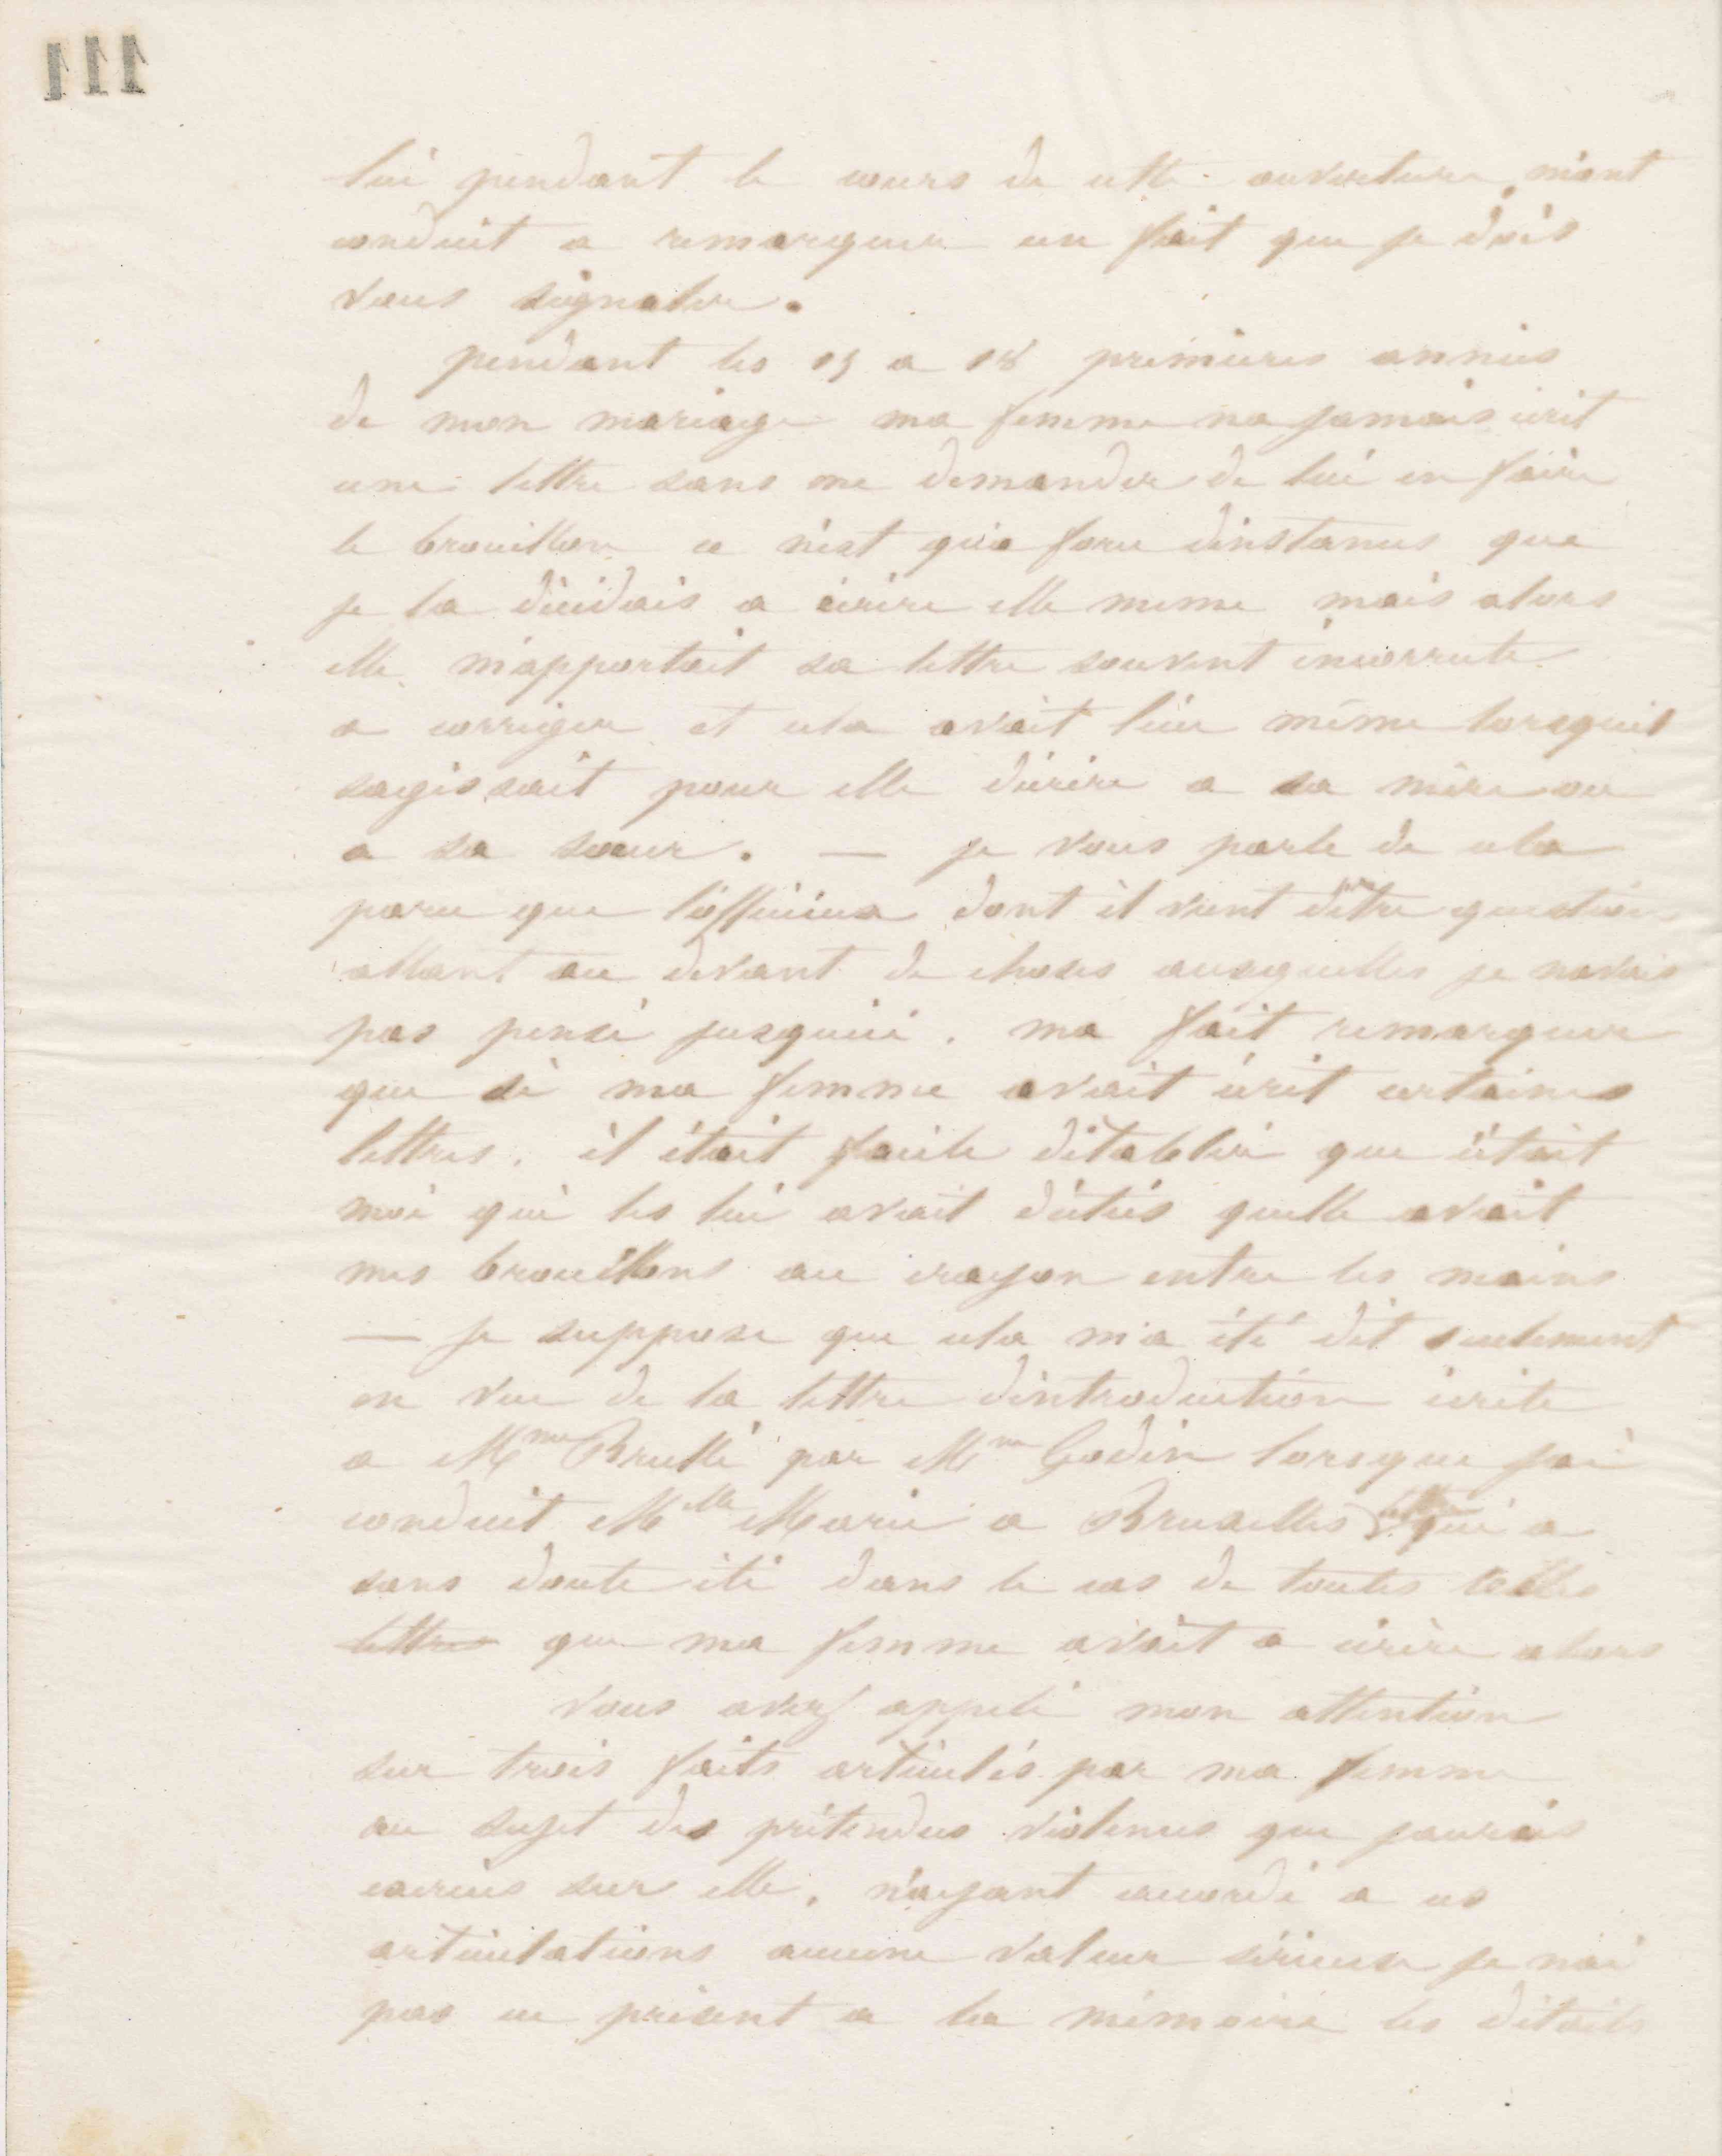 111
lui pendant le cours de cette ouverture m'ont
conduit a remarquer un fait que je dois
vous signaler.
pendant les 15 a 18 premieres années
de mon mariage ma femme na jamais écrit
une lettre sans me demander de lui en faire
le brouillon ce n'est qu'a force dinstances que
je la décidais a écrire elle meme mais alors
elle m'apportait sa lettre souvent incorrecte
a corriger et cela avait lieu même lorsquil
sagissait pour elle décrire a sa mère ou
a sa sœur. — je vous parle de cela
parce que dont il vient dêtre question
allant au devant de choses auxquelles je navais
pas pensé jusquici. ma fait remarquer
que si ma femme avait écrit certaines
lettres, il était facile détablir que cétait
moi qui les lui avait dictés quelle avait
mes brouillons au crayon entre les mains
— je suppose que cela m'a été dit seulement
en vue de la lettre dintroduction écrite
a Mme Brullé par Mme Godin lorsque jai
conduit Melle Marie a Bruxelles qui a
sans doute été dans le cas de toutes celles
lettres que ma femme avait a écrire alors
vous avez appelé mon attention
sur trois faits articulés par ma femme
au sujet des prétendus violences que jaurais
exercées sur elle, n'ayant accordé a ces
articulations aucune valeur sérieuse je nai
pas en présent a la mémoire les détails